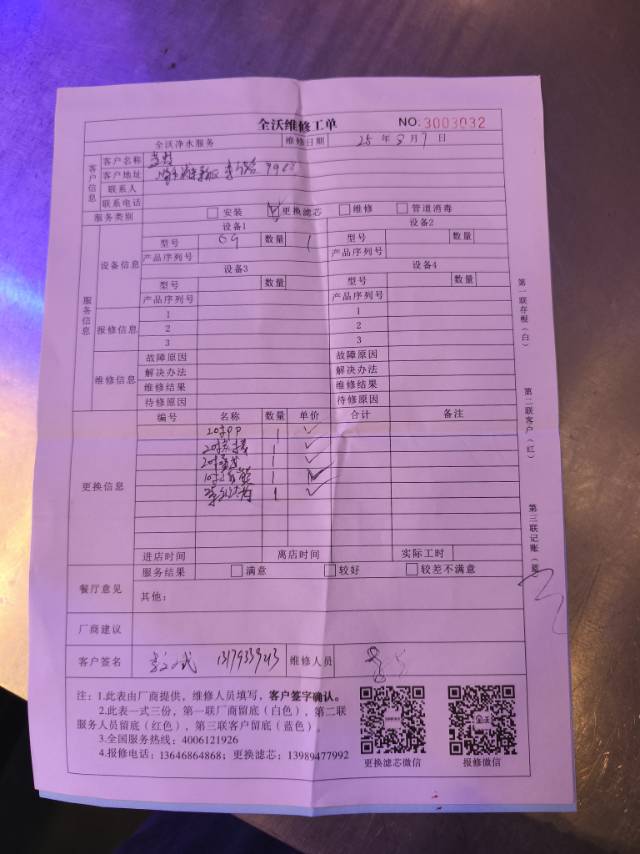 全沃维修工单 NO.3003032
全沃净水服务 维修日期 25 年 8 月 7 日
客户信息
客户名称
客户地址
联系人
联系电话
服务类别 安装 更换滤芯 维修 管道消毒
服务信息
设备信息
设备1 设备2
型号 数量 1 型号 数量
产品序列号 产品序列号
设备3 设备4
型号 数量 型号 数量
产品序列号 产品序列号
报修信息
1 1
2 2
3 3
维修信息
故障原因 故障原因
解决办法 解决办法
维修结果 维修结果
待修原因 待修原因
更换信息
编号 名称 数量 单价 合计 备注
20寸PP 1
20寸 1
20寸 1
10寸 1
1
进店时间 离店时间 实际工时
餐厅意见
服务结果 满意 较好 较差不满意
其他：
厂商建议
客户签名 维修人员
注：1.此表由厂商提供，维修人员填写，客户签字确认。
2.此表一式三份，第一联厂商留底（白色），第二联
服务人员留底（红色），第三联客户留底（蓝色）。
3.全国服务热线：4006121926
4.报修电话：13646864868；更换滤芯：13989477992
更换滤芯微信 报修微信
第一联存根（白）
第二联客户（红）
第三联记账